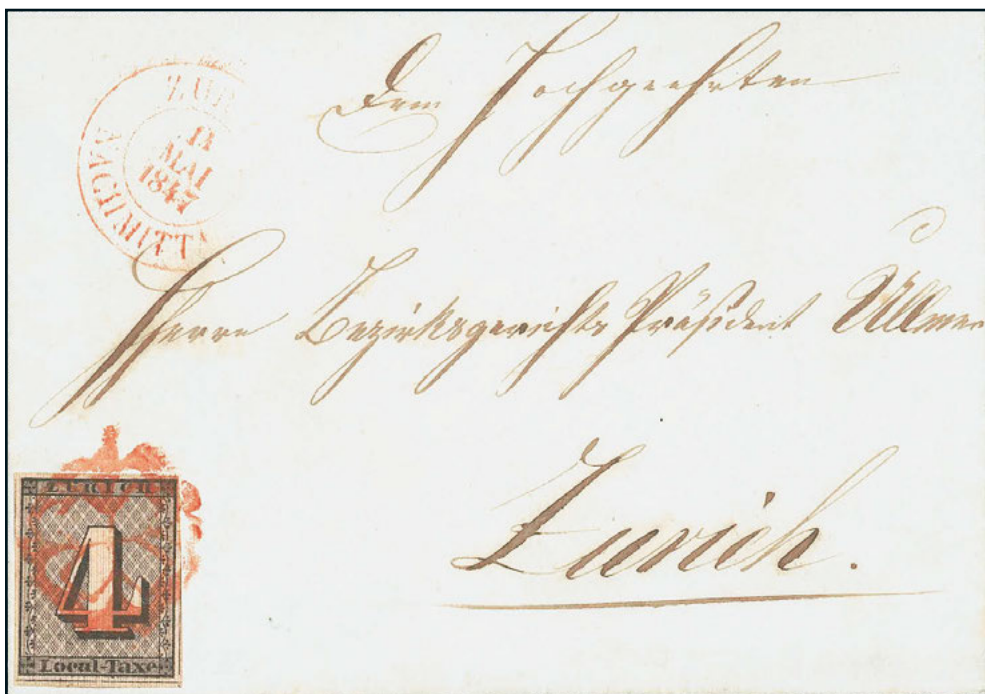 ZUR
14
MAI
1847
NACHMITTA
Dem Hochgeehrten
Herrn Bezirksgerichts Präsident Ullmer
Zürich.
ZÜRICH
4
Local-Taxe